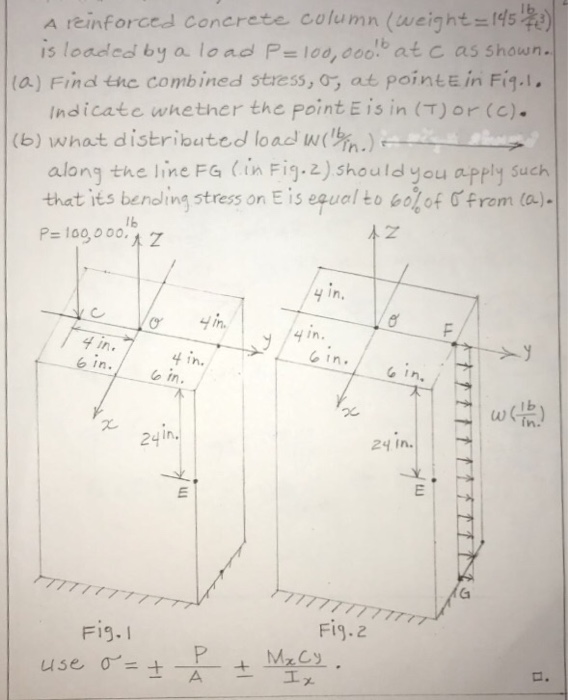 A reinforced concrete column (weight=145 lb/ft³)
is loaded by a load P=100,000.lb at C as shown.
(a) Find the combined stress, σ, at point E in Fig.1.
Indicate whether the point E is in (T) or (C).
(b) What distributed load w(lb/in.)
along the line FG (in Fig.2) should you apply such
that its bending stress on E is equal to 60% of σ from (a).
P=100,000.lb
Z
C
O
4 in.
y
4 in.
6 in.
4 in.
6 in.
x
24 in.
E
Fig.1
Z
4 in.
O
F
4 in.
6 in.
y
6 in.
x
w(lb/in.)
24 in.
E
G
Fig.2
use σ = ± P/A ± MxCy/Ix .